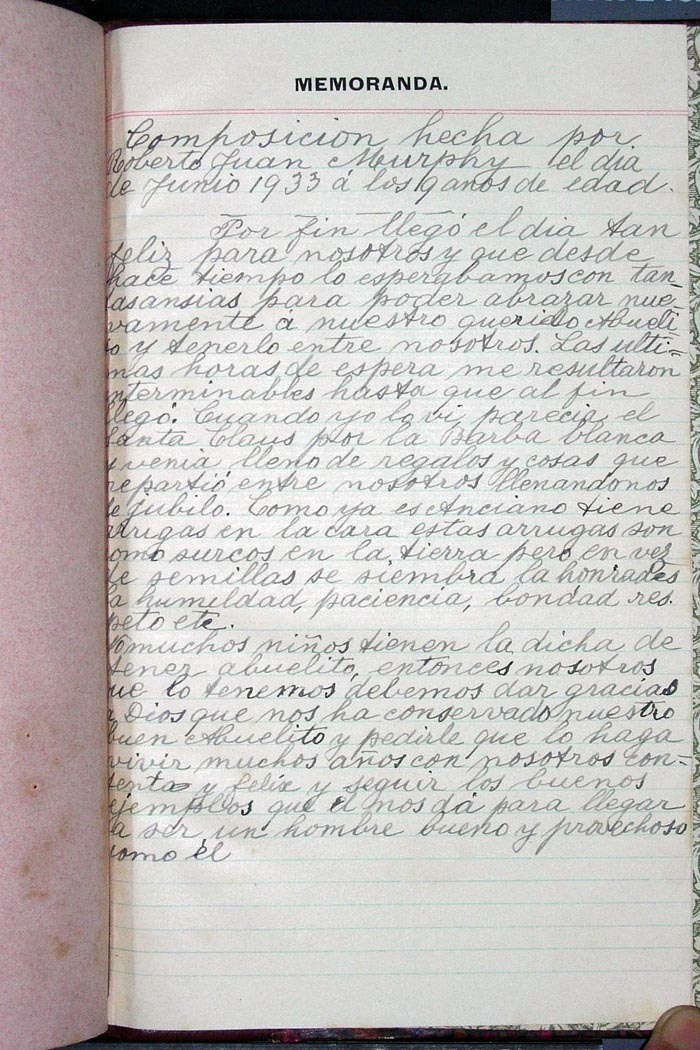 MEMORANDA.
Composicion hecha por
Roberto Juan Murphy el dia
de Junio 1933 á los 9 anos de edad.
Por fin llegó el dia tan
feliz para nosotros y que desde
hace tiempo lo esperabamos con tan-
tas ansias para poder abrazar nue-
vamente á nuestro querido Abueli-
to y tenerlo entre nosotros. Las ulti-
mas horas de espera me resultaron
interminables hasta que al fin
llegó. Cuando yo lo vi parecia el
Santa Claus por la Barba blanca
y venia lleno de regalos y cosas que
repartió entre nosotros llenandonos
de jubilo. Como ya es Anciano tiene
arrugas en la cara estas arrugas son
como surcos en la tierra pero en vez
de semillas se siembra la honrades
la humildad, paciencia, bondad res-
peto etc.
No muchos niños tienen la dicha de
tener abuelito, entonces nosotros
que lo tenemos debemos dar gracias
a Dios que nos ha conservado nuestro
buen Abuelito y pedirle que lo haga
vivir muchos años con nosotros con-
tento y feliz y seguir los buenos
ejemplos que él nos dá para llegar
a ser un hombre bueno y provechoso
como él